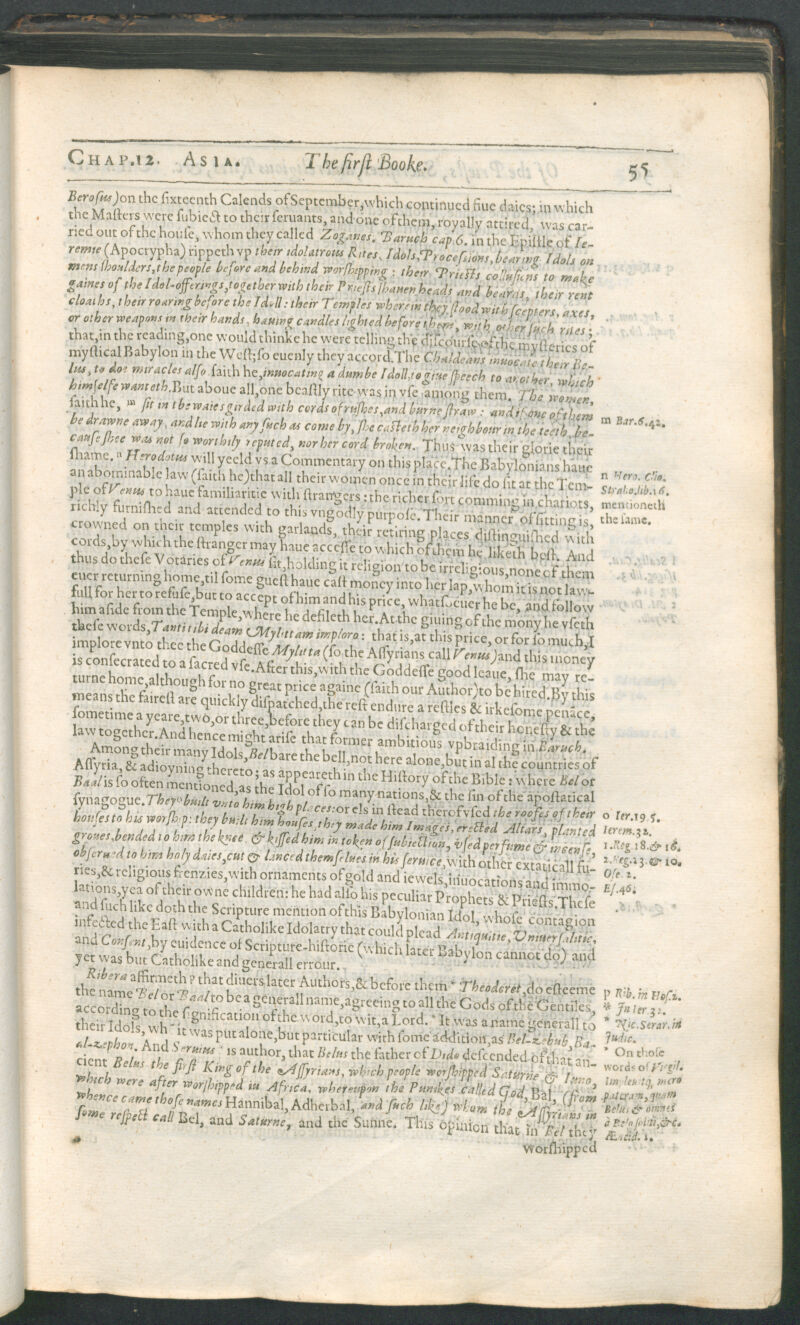 CHAP.12. ASIA. The firſt Booke. 55
Beroſus) on the ſixteenth Calends of September, which continued fiue daies; in which
the Maſters were ſubiect to their ſeruants, and one of them, royally attired, was car-
ried out of the houſe, whom they called Zoganes. Baruch cap. 6. in the Epiſtle of Ie-
remie (Apocrypha) rippeth vp their idolatrous Rites, Idols, Proceſsions, bearing Idols on
mens ſhoulders, the people before and behind worſhipping: their Prieſts colluſions to make
gaines of the Idol-offerings, together with their Prieſts ſhauen heads and beards, their rent
cloaths, their roaring before the Idoll: their Temples wherein they ſtood with ſcepters, axes,
or other weapons in their hands, hauing candles lighted before them, with other ſuch rites;
that, in the reading, one would thinke he were telling the diſcourſe of the myſteries of
myſticall Babylon in the Weſt; ſo euenly they accord. The Chaldeans inuocate their Be-
lus, to doe miracles alſo ſaith he, inuocating a dumbe Idoll, to giue ſpeech to another, which
himſelfe wanteth. But aboue all, one beaſtly rite was in vſe among them. The women,
ſaith he, m ſit in the waies girded with cords of ruſhes, and burne ſtraw: and if one of them
be drawne away, and lie with any ſuch as come by, ſhe caſteth her neighbour in the teeth, be-
cauſe ſhee was not ſo worthily reputed, nor her cord broken. Thus was their glorie their
ſhame. n Herodotus will yeeld vs a Commentary on this place. The Babylonians haue
an abominable law (ſaith he) that all their women once in their life do ſit at the Tem-
ple of Venus to haue familiaritie with ſtrangers: the richer ſort comming in chariots,
richly furniſhed and attended to this vngodly purpoſe. Their manner of ſitting is,
crowned on their temples with garlands, their retiring places diſtinguiſhed with
cords, by which the ſtranger may haue acceſſe to which of them he liketh beſt. And
thus do theſe Votaries of Venus ſit, holding it religion to be irreligious, none of them
euer returning home, til ſome gueſt haue caſt money into her lap, whom it is not law-
full for her to refuſe, but to accept of him and his price, whatſoeuer he be, and follow
him aſide from the Temple, where he defileth her. At the giuing of the mony he vſeth
theſe words, Tanti tibi deam Mylittam imploro: that is, at this price, or for ſo much, I
implore vnto thee the Goddeſſe Mylitta (ſo the Aſſyrians call Venus) and this money
is conſecrated to a ſacred vſe. After this, with the Goddeſſe good leaue, ſhe may re-
turne home, although for no great price againe (ſaith our Author) to be hired. By this
means the faireſt are quickly diſpatched, the reſt endure a reſtles & irkeſome penãce,
ſometime a yeare, two, or three, before they can be diſcharged of their honeſty & the
law together. And hence might ariſe that former ambitious vpbraiding in Baruch.
Among their many Idols, Bel bare the bell, not here alone, but in al the countries of
Aſſyria, & adioyning thereto; as appeareth in the Hiſtory of the Bible: where Bel or
Baal is ſo often mentioned, as the Idol of ſo many nations, & the ſin of the apoſtatical
ſynagogue. They o built vnto him high places: or els in ſtead therof vſed the roofes of their
houſes to his worſhip: they built him houſes, they made him Images, erected Altars, planted
groues, bended to him the knee & kiſſed him in token of ſubiection, vſed perfume & incenſe,
obſerued to him holy daies, cut & lanced themſelues in his ſeruice, with other extaticall fu-
ries, & religious frenzies, with ornaments of gold and iewels, inuocations and immo-
lations, yea of their owne children: he had alſo his peculiar Prophets & Prieſts. Theſe
and ſuch like doth the Scripture mention of this Babylonian Idol, whoſe contagion
infected the Eaſt with a Catholike Idolatry that could plead Antiquitie, Vniuerſalitie,
and Conſent, by euidence of Scripture-hiſtorie (which later Babylon cannot do) and
yet was but Catholike and generall errour.
Ribera affirmeth p that diuers later Authors, & before them * Theodoret, do eſteeme
the name Bel or Baal to be a generall name, agreeing to all the Gods of the Gentiles,
according to the ſignification of the word, to wit, a Lord. * It was a name generall to
their Idols, wh̃ it was put alone, but particular with ſome addition, as Bel-zebub, Ba-
al-zephon. And Seruius * is author, that Belus the father of Dido deſcended of that an-
cient Belus the firſt King of the Aſſyrians, which people worſhipped Saturne & Iuno,
which were after worſhipped in Africa, whereupon the Punikes called God, Bal, (from
whence came thoſe names Hannibal, Adherbal, and ſuch like) whom the Aſſyrians in
ſome reſpect call Bel, and Saturne, and the Sunne. This opinion that in Bel they
worſhipped
m Bar.6.42.
n Hero. Clio.
Strabo.lib.16.
mentioneth
the ſame.
o Ier.19.5.
Ierem.32.
1.Reg 18.& 16.
2.Reg.23.& 10.
Oſe. 2.
Eſ.46.
p Rib. in Hoſ.2.
* In Ier 32.
* Nic.Serar.in
Iudic.
* On thoſe
words of Virgil.
Impleuitq; mero
pateram, quam
Belus & omnes
à Belo ſoliti,&c.
Æneid. 1.